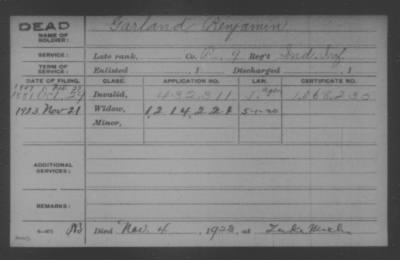 DEAD
NAME OF SOLDIER:
Garland Benjamin
SERVICE:
Late rank, Co. 9 Reg't Ind. Inf.
TERM OF SERVICE:
Enlisted , 1 Discharged , 1
DATE OF FILING. CLASS. APPLICATION NO. LAW. CERTIFICATE NO.
Oct. 29 Invalid, 432,311
1923 Nov 21 Widow, 5-1-20
Minor,
ADDITIONAL SERVICES:
REMARKS:
Died Nov. 4, 1923 at